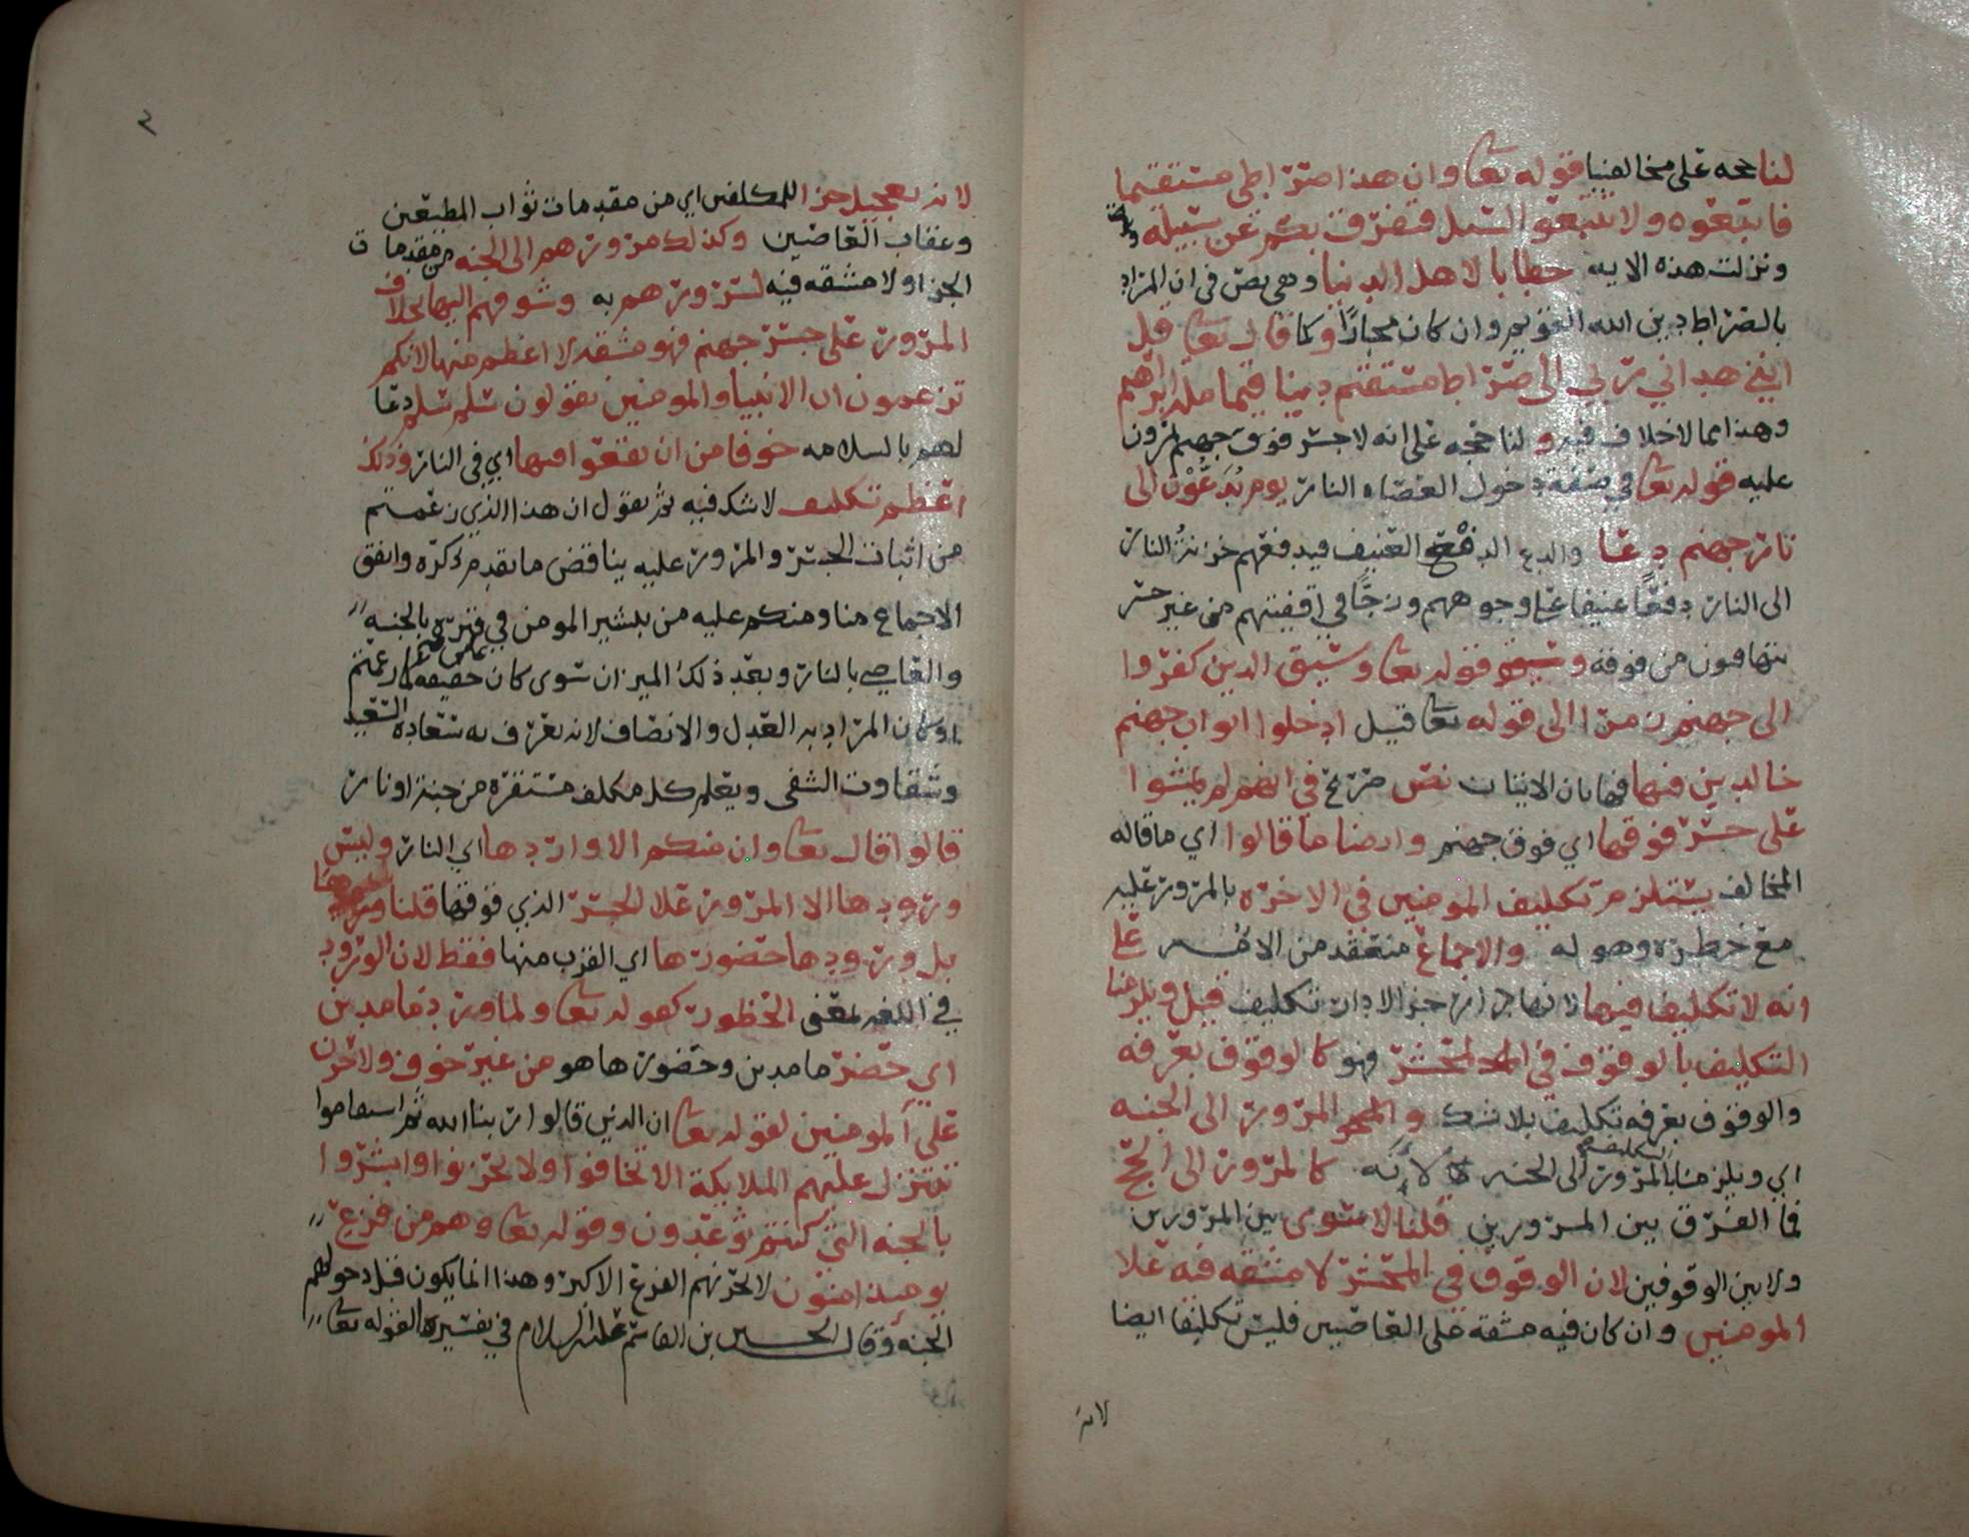 لنا حجه على مخالفينا قوله تعا وان هذا صراطي مستقيما
فاتبعوه ولا تتبعوا السبل فتفرق بكم عن سبيله
ونزلت هذه الايه خطابا لاهل الدنيا وهي نص في ان المراد
بالصراط دين الله القويم وان كان مجازا وكما قال تعا قل
انني هداني ربي الى صراط مستقيم دينا قيما مله ابراهيم
وهذا مما لا خلاف فيه ولنا حجه على انه لا جسر فوق جهنم يمرون
عليه قوله تعا في صفة دخول العصاه النار يوم يُدَعُّوْن الى
نار جهنم دعا والدع الدفع العنيف فيدفعهم خزنةُ النار
الى النار دفعًا عنيفا على وجوههم وزجًّا في اقفيتهم من غير جسر
يتهافتون من فوقه وسيق قوله تعا وسيق الدين كفروا
الى جهنم زمرا الى قوله تعا قيل ادخلوا ابواب جهنم
خالدين فيها فهاتان الايتان نص صريح في انهم لم يمشوا
على جسر فوقها اي فوق جهنم وايضا ما قالوا اي ما قاله
المخالف يستلزم تكليف المومنين في الاخره بالمرور عليه
مع خطره وهوله والاجماع منعقد من الامه على
انه لا تكليف فيها لانها دار جزا لا دار تكليف قيل ويلزمنا
التكليف بالوقوف في المحشر فهو كالوقوف بعرفه
والوقوف بعرفه تكليف بلا شك والمرور الى الجنه
اي ويلزمنا التكليف بالمرور الى الجنه لأنه كالمرور الى الحج
فما الفرق بين المرورين قلنا لا سوى بين المرورين
ولا بين الوقوفين لان الوقوف في المحشر لا مشقه فيه على
المومنين وان كان فيه مشقة على العاصين فليس تكليفا ايضا
لانه
٢
لانه تعجيل جزا للمكلفين اي من مقدمات ثواب المطيعين
وعقاب العاصين وكذلك مرورهم الى الجنه من مقدمات
الجزا ولا مشقه فيه لسرورهم به وشوقهم اليها بخلاف
المرور على جسر جهنم فهو مشقه لا اعظم منها لانكم
تزعمون ان الانبيا والمومنين يقولون سلم سلم دعا
لهم بالسلامه خوفا من ان يقعوا فيها اي في النار وذلك
اعظم تكليف لا شك فيه ثم نقول ان هذا الذي زعمتم
من اثبات الجسر والمرور عليه يناقض ما تقدم ذكره واتفق
الاجماع منا ومنكم عليه من تبشير المومن في قبره بالجنه
والعاصي بالنار وبعد ذلك الميزان سوى كان حقيقه كما زعمتم
او كان المراد به العدل والانصاف لانه يعرف به سعادة السعيد
وشقاوت الشقى ويعلم كل مكلف مستقره من جنة او نار
قالوا قال تعا وان منكم الا واردها اي النار وليس
ورودها الا المرور على الجسر الذي فوقها قلنا
بل ورودها حضورها اي القرب منها فقط لان الورود
في اللغه بمعنى الحضور كقوله تعا ولما ورد ما مدين
اي حضر ما مدين وحضورها هو من غير خوف ولا حزن
على المومنين لقوله تعا ان الدين قالوا ربنا الله ثم استقاموا
تتنزل عليهم الملايكة الا تخافوا ولا تحزنوا وابشروا
بالجنه التي كنتم توعدون وقوله تعا وهم من فزع
يوميذ امنون لا يحزنهم الفزع الاكبر وهذا انما يكون قبل دخولهم
الجنه وقال الحسين بن القاسم عليه السلام في تفسيره لقوله تعا